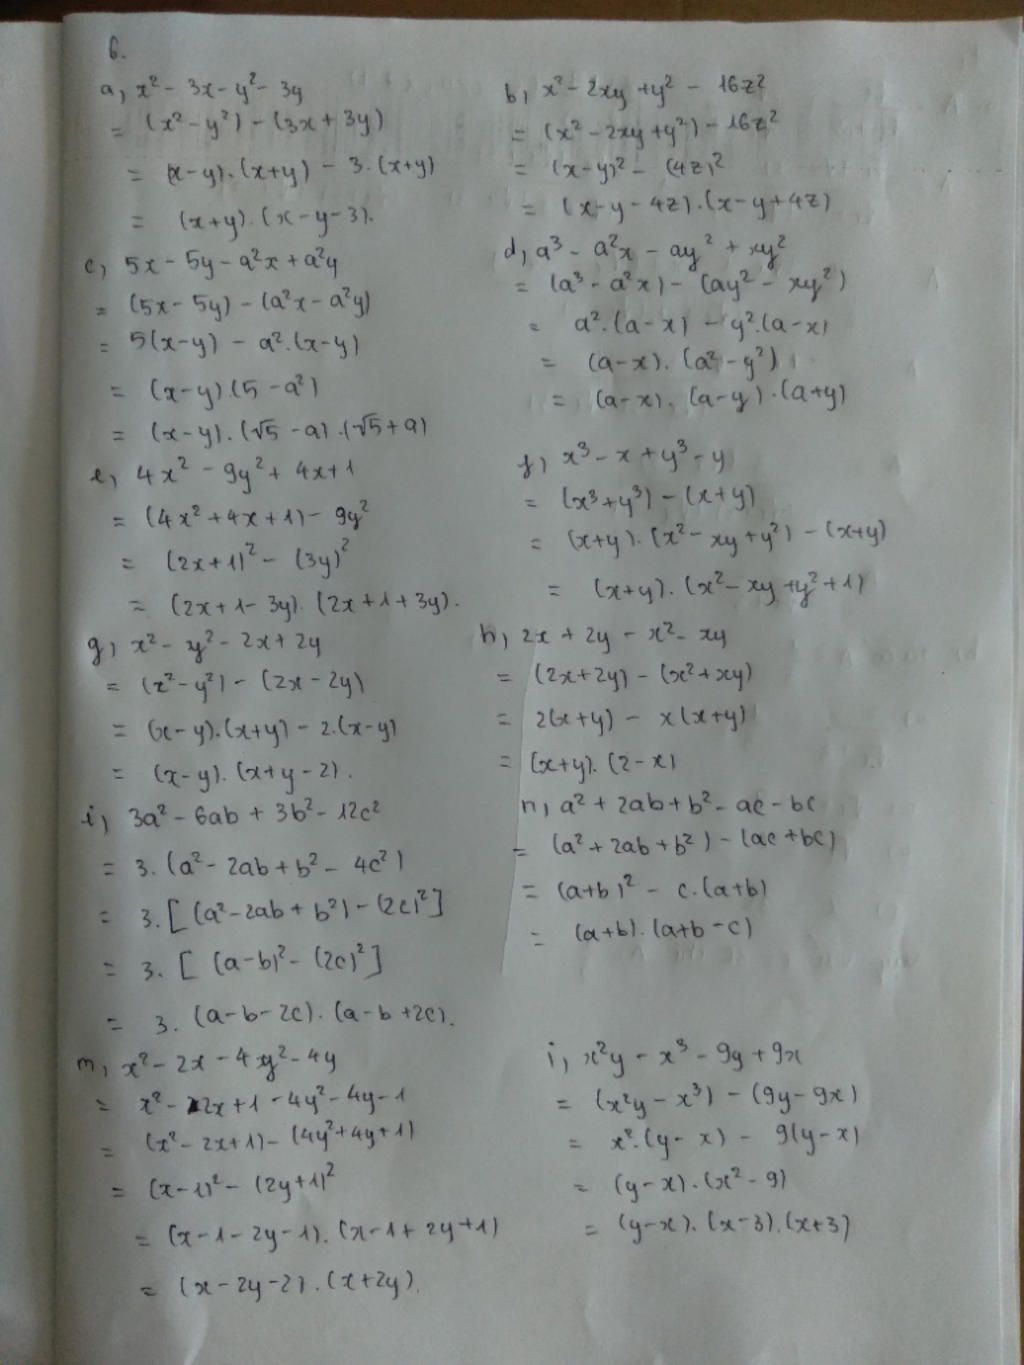 6.
a, x² - 3x - y² - 3y
= (x² - y²) - (3x + 3y)
= (x-y).(x+y) - 3.(x+y)
= (x+y).(x-y-3).
b, x² - 2xy + y² - 16z²
= (x² - 2xy + y²) - 16z²
= (x-y)² - (4z)²
= (x-y-4z).(x-y+4z)
c, 5x - 5y - a²x + a²y
= (5x - 5y) - (a²x - a²y)
= 5(x-y) - a².(x-y)
= (x-y).(5 - a²)
= (x-y).(√5 - a).(√5 + a)
d, a³ - a²x - ay² + xy²
= (a³ - a²x) - (ay² - xy²)
= a².(a-x) - y².(a-x)
= (a-x).(a² - y²)
= (a-x).(a-y).(a+y)
e, 4x² - 9y² + 4x + 1
= (4x² + 4x + 1) - 9y²
= (2x+1)² - (3y)²
= (2x+1-3y).(2x+1+3y).
f, x³ - x + y³ - y
= (x³ + y³) - (x+y)
= (x+y).(x² - xy + y²) - (x+y)
= (x+y).(x² - xy + y² + 1)
g, x² - y² - 2x + 2y
= (x² - y²) - (2x - 2y)
= (x-y).(x+y) - 2.(x-y)
= (x-y).(x+y-2).
h, 2x + 2y - x² - xy
= (2x+2y) - (x² + xy)
= 2(x+y) - x(x+y)
= (x+y).(2-x)
i, 3a² - 6ab + 3b² - 12c²
= 3.(a² - 2ab + b² - 4c²)
= 3.[(a² - 2ab + b²) - (2c)²]
= 3.[(a-b)² - (2c)²]
= 3.(a-b-2c).(a-b+2c).
n, a² + 2ab + b² - ac - bc
= (a² + 2ab + b²) - (ac + bc)
= (a+b)² - c.(a+b)
= (a+b).(a+b-c)
m, x² - 2x - 4xy² - 4y
= x² - 2x + 1 - 4y² - 4y - 1
= (x² - 2x + 1) - (4y² + 4y + 1)
= (x-1)² - (2y+1)²
= (x-1-2y-1).(x-1+2y+1)
= (x-2y-2).(x+2y).
i, x²y - x³ - 9y + 9x
= (x²y - x³) - (9y - 9x)
= x².(y-x) - 9(y-x)
= (y-x).(x² - 9)
= (y-x).(x-3).(x+3)